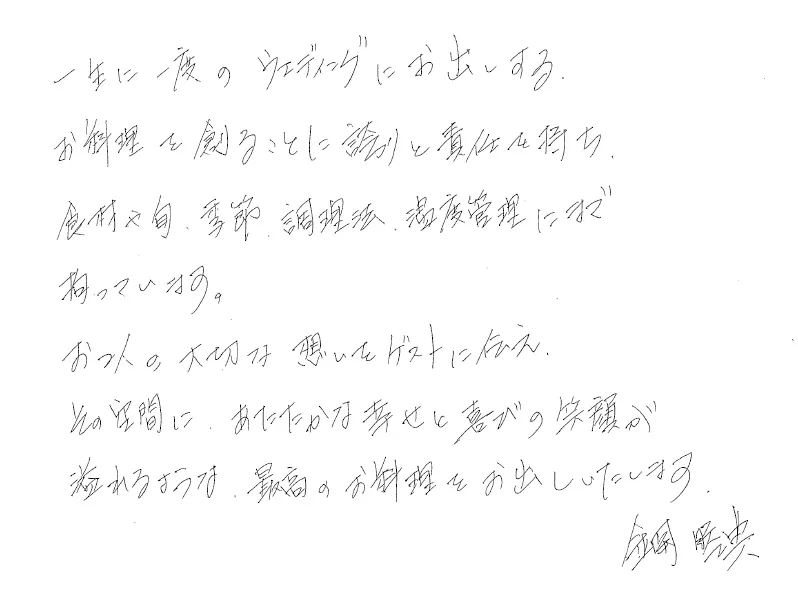 一生に一度のウェディングにお出しする、
お料理を創ることに誇りと責任を持ち、
食材や旬、季節、調理法、温度管理にまで
拘っています。
お二人の大切な想いをゲストに伝え、
その空間に、あたたかな幸せと喜びの笑顔が
溢れるような、最高のお料理をお出しいたします。